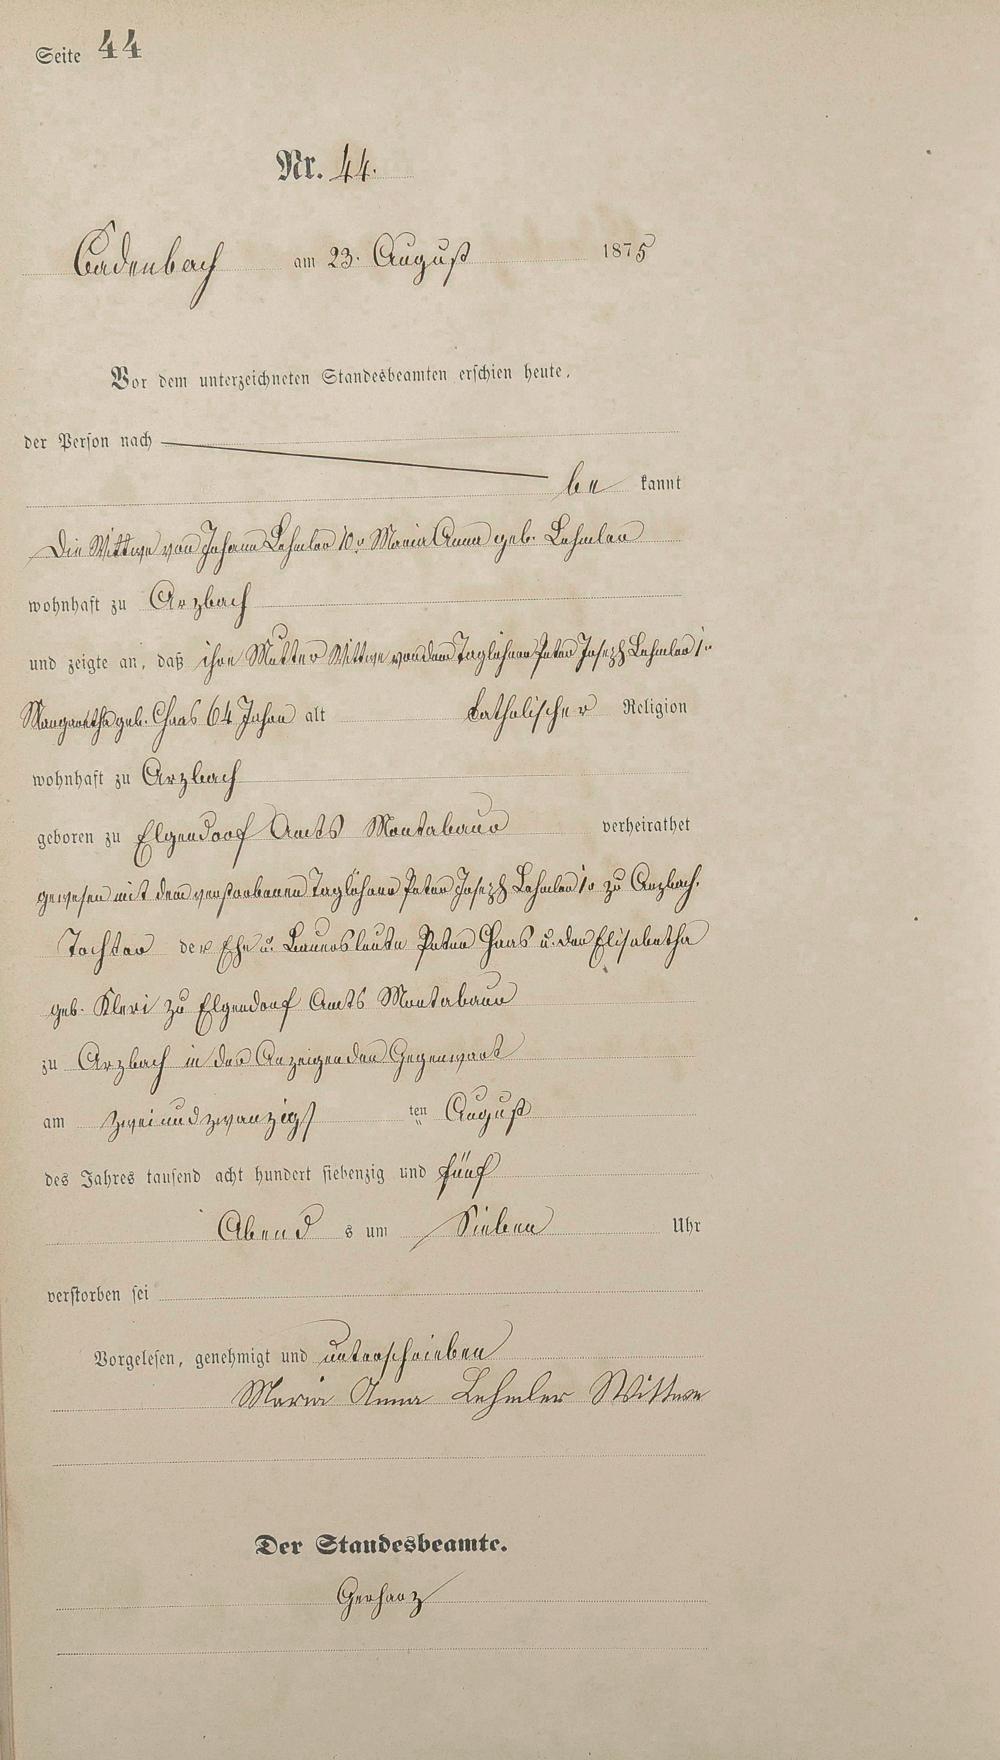 Seite 44
Nr. 44.
Cadenbach am 23. August 1875
Vor dem unterzeichneten Standesbeamten erschien heute,
der Person nach
be kannt
Die Wittwe von Johann Lehmler 10r Maria Anna geb. Lehmler
wohnhaft zu Arzbach
und zeigte an, daß ihre Mutter Wittwe von dem Taglöhner Peter Joseph Lehmler 1r
Margaretha geb. Haas 64 Jahre alt katholischer Religion
wohnhaft zu Arzbach
geboren zu Elgendorf Amts Montabaur verheirathet
gewesen mit dem verstorbenen Taglöhner Peter Joseph Lehmler 1r zu Arzbach.
Tochter der Ehe u. Bauersleute Peter Haas u. der Elisabetha
geb. Kleri zu Elgendorf Amts Montabaur
zu Arzbach in der Anzeigenden Gegenwart
am zweiundzwanzigs ten August
des Jahres tausend acht hundert siebenzig und fünf
Abend s um Sieben Uhr
verstorben sei
Vorgelesen, genehmigt und unterschrieben
Maria Anna Lehmler Wittwe
Der Standesbeamte.
Gerharz